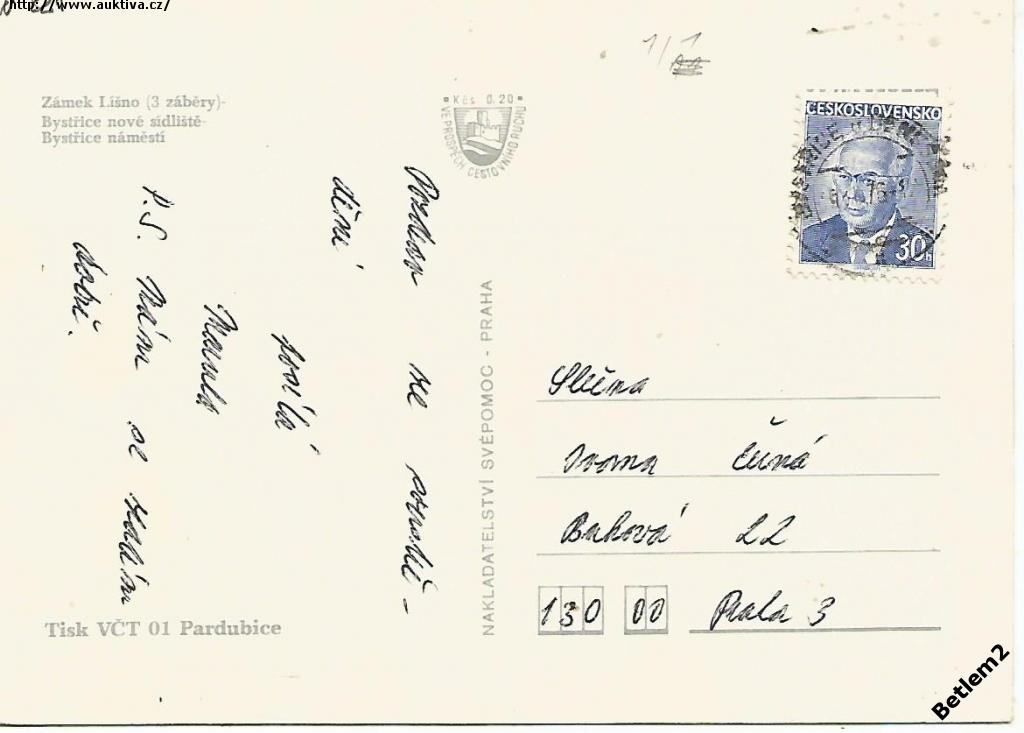 http://www.auktiva.cz/
1/1
Zámek Líšno (3 záběry)-
Bystřice nové sídliště-
Bystřice náměstí
Kčs 0.20
VE PROSPĚCH CESTOVNÍHO RUCHU
ČESKOSLOVENSKO
30h
Pozdrav ze
dění
posílá
P.S. Nám se
dobře.
NAKLADATELSTVÍ SVÉPOMOC - PRAHA
Slečna
Ivona
Buková 22
130 00 Praha 3
Tisk VČT 01 Pardubice
Betlem2